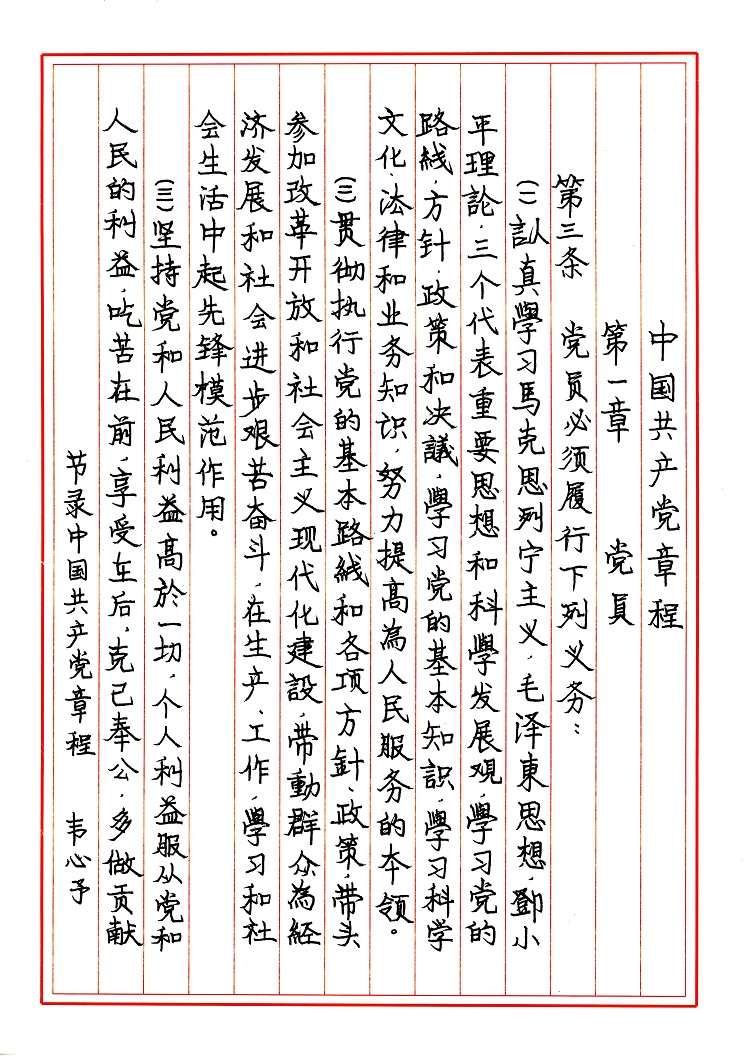 中国共产党章程
第一章　党員
第三条　党员必须履行下列义务：
(一)認真學习馬克思列宁主义，毛泽東思想，鄧小
平理論，三个代表重要思想和科學发展观，學习党的
路綫，方针，政策和决議，學习党的基本知識，學习科学
文化，法律和业务知识，努力提高為人民服务的本领。
(二)贯彻执行党的基本路綫和各项方針、政策，带头
参加改革开放和社会主义现代化建設，带動群众為經
济发展和社会进步艰苦奋斗，在生产、工作，學习和社
会生活中起先锋模范作用。
(三)坚持党和人民利益高於一切，个人利益服从党和
人民的利益，吃苦在前，享受在后，克己奉公，多做贡献
节录中国共产党章程　韦心予